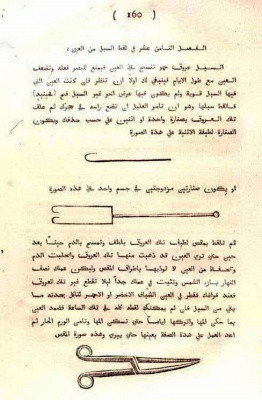 ( 160 )
الفصل الثامن عشر في لقط السبل من العين
السبل عروق حمر تنتسج على العين فيمنع البصر فعله وتضعف
العين مع طول الايام فينبغي لك اولا ان تنظر فان كانت العين التي
فيها السبل قوية ولم يكن فيها مرض اخر غير السبل
فالقط سبلها وهو ان تامر العليل ان يضع راسه في حجرك ثم تعلق
تلك العروق بصنارة واحدة او اثنتين على حسب حذقك ويكون
الصنارة لطيفة الانثناء على هذه الصورة
او يكون صنارتين مزدوجتين في جسم واحد على هذه الصورة
ثم تلقط بمقص لطيف تلك العروق بلطف وتمسح بالدم حينا بعد
حين حتى ترى العين قد ذهبت منها تلك العروق وانحلت الدم
وتحفظ من العين لا توذيها باطراف المقص وليكون عملك نصف
النهار بين الشمس وتثبت في عملك جدا ليلا تقطع غير تلك العروق
فعند فراغك تقطر في العين الشياف الاخضر او الاحمر لتاكل بحدته ما
بقى من السبل فان لم يمكنك لقطه كله في تلك الساعة فضمد العين
بما سكن الها واتركها اياما حتى تسكن الها وتامن الورم الحار ثم
اعد العمل على هذه الصفة بعينها حتى يبرى وهذه صورة المقص